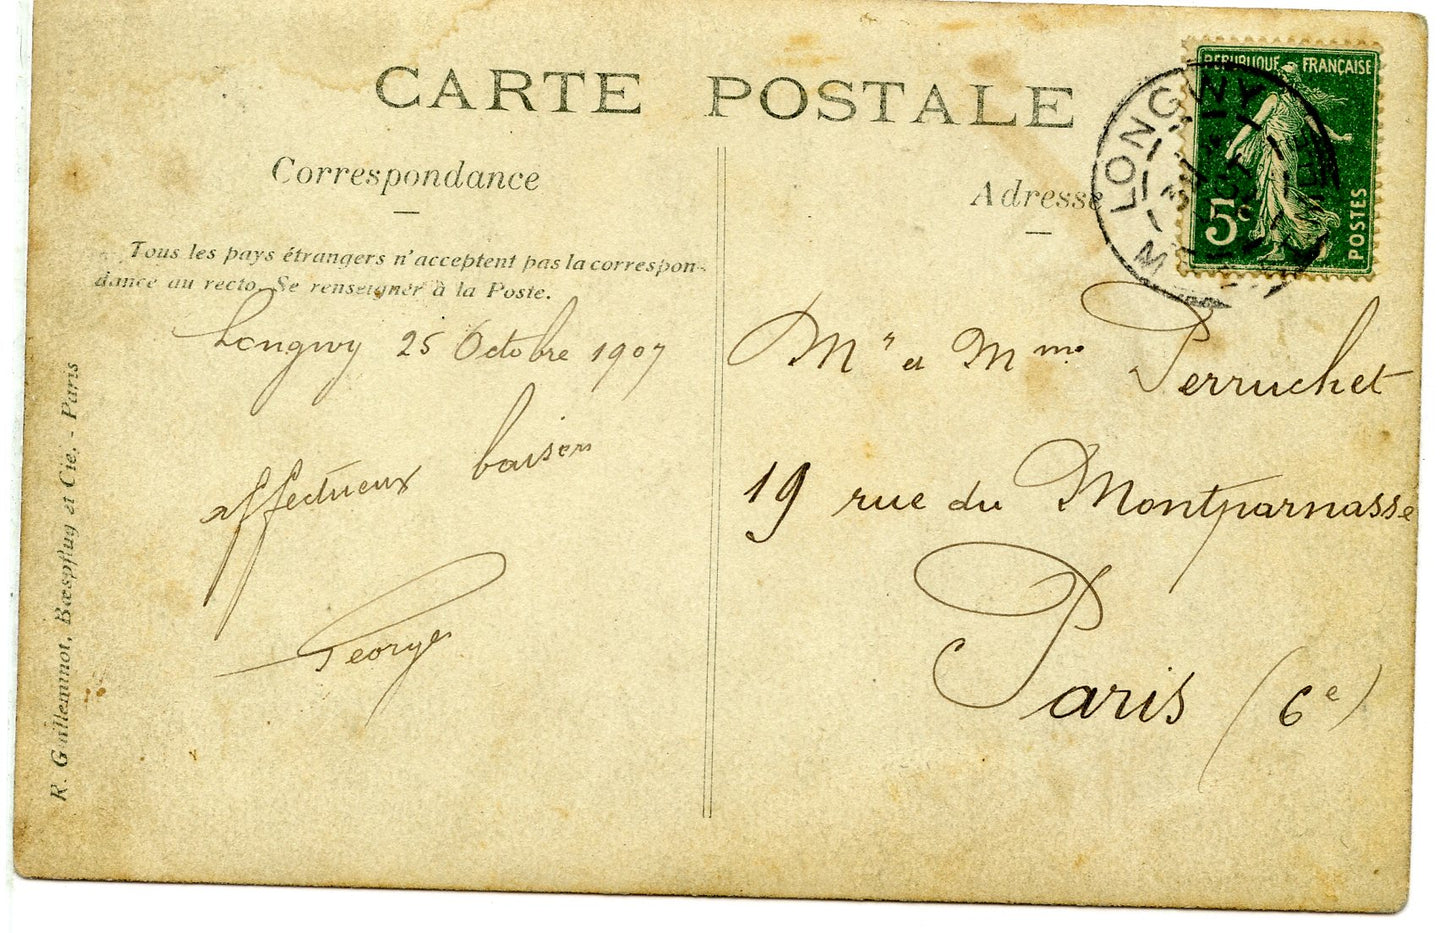 CARTE POSTALE
Correspondance
Tous les pays étrangers n'acceptent pas la correspon-
dance au recto. Se renseigner à la Poste.
Longwy 25 Octobre 1907
affectueux baisers
Georges
R. Guilleminot, Bœspflug et Cie. - Paris
Adresse
Mr et Mme Perruchet
19 rue du Montparnasse
Paris (6e)
REPUBLIQUE FRANÇAISE
5c
POSTES
LONGWY